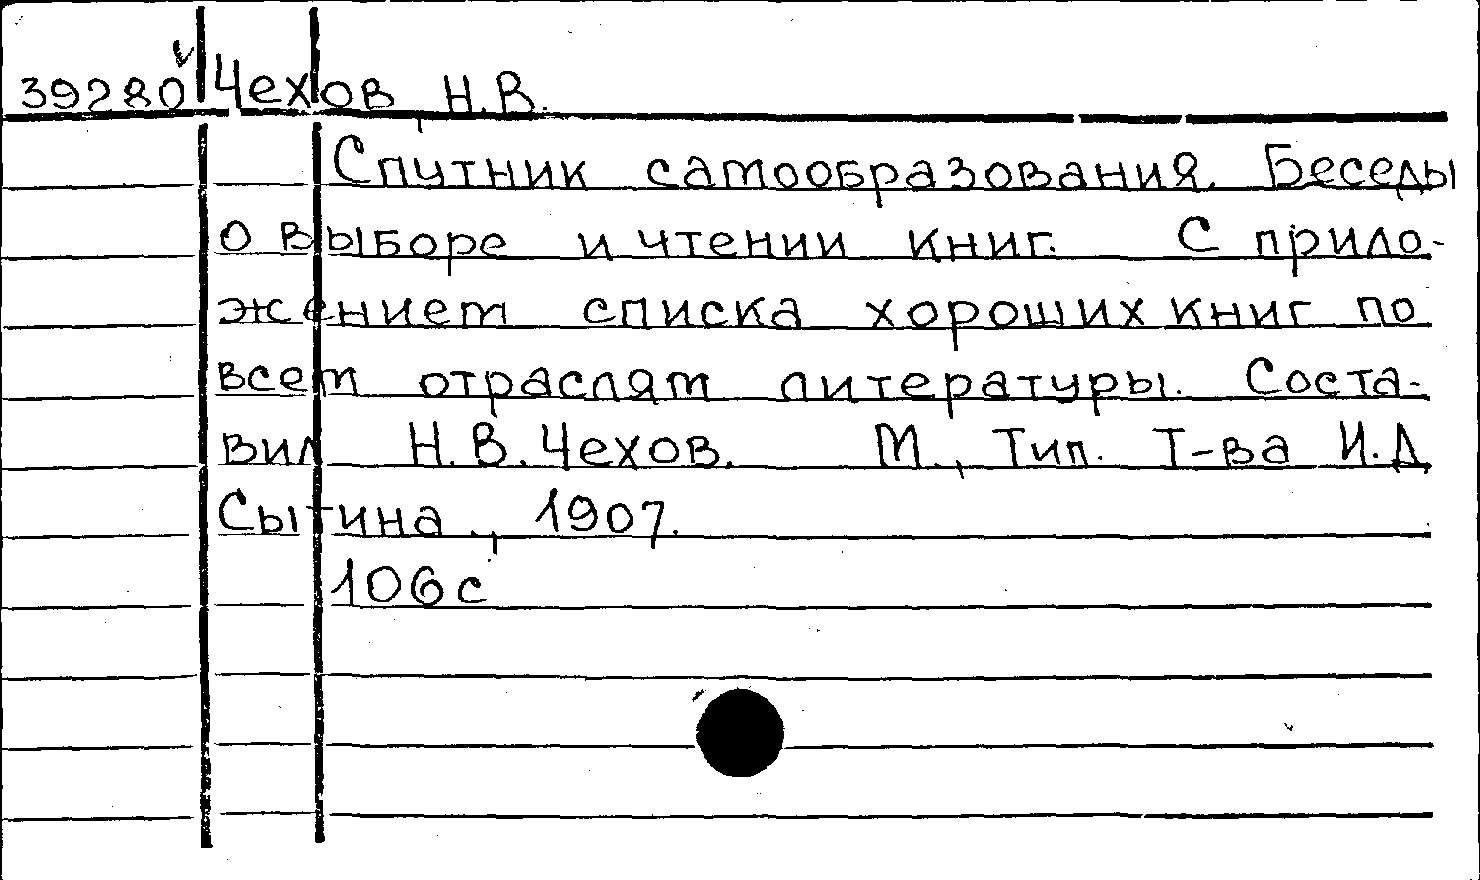 39280 Чехов, Н.В.
Спутник самообразования. Беседы
о выборе и чтении книг. С прило-
жением списка хороших книг по
всем отраслям литературы. Соста-
вил Н.В. Чехов. М., Тип. Т-ва И.Д.
Сытина, 1907.
106 с